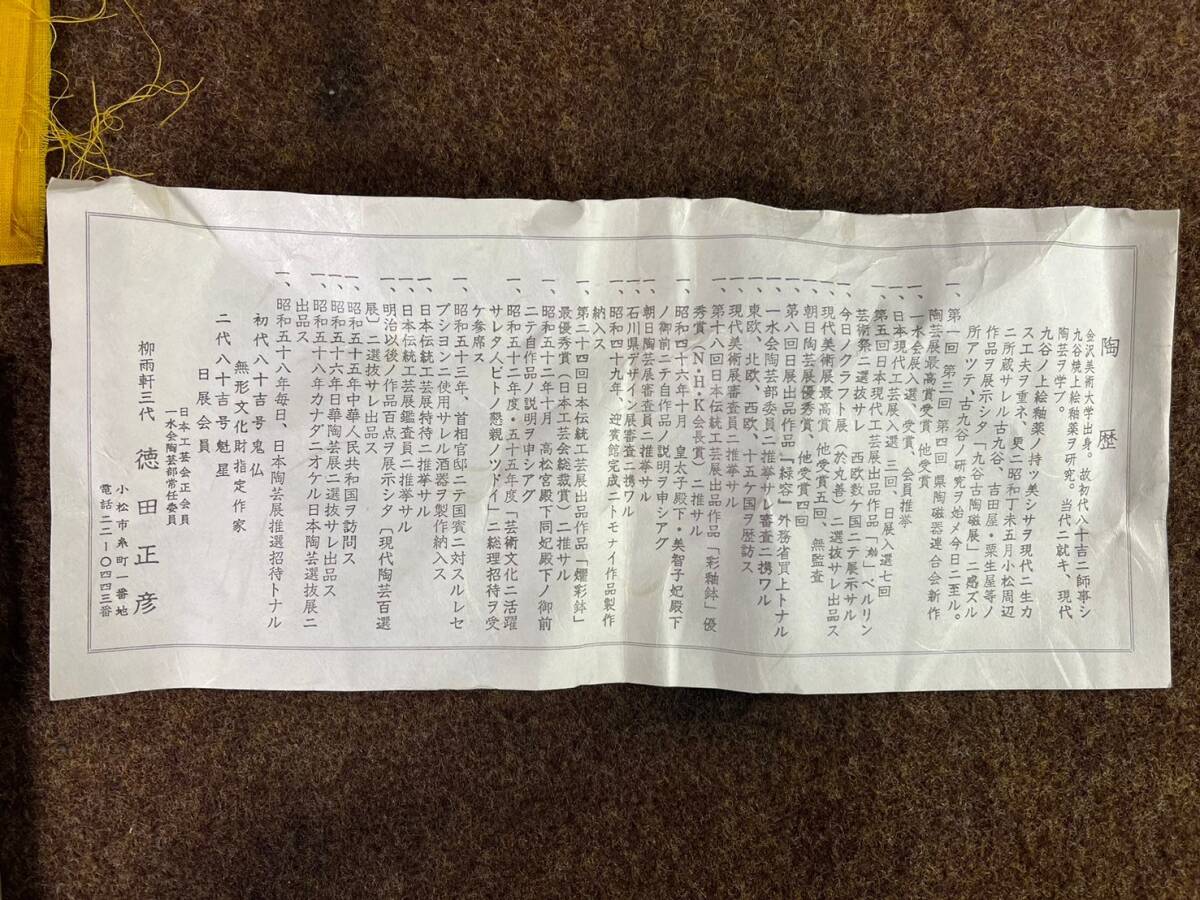 陶歴
金沢美術大学出身。故初代八十吉ニ師事シ
九谷焼上絵釉薬ヲ研究。当代ニ就キ、現代
陶芸ヲ学ブ。
九谷ノ上絵釉薬ノ持ツ美シサヲ現代ニ生カ
ス工夫ヲ重ネ、更ニ昭和丁未五月小松周辺
ニ所蔵サレル古九谷、吉田屋・粟生屋等ノ
作品ヲ展示シタ「九谷古陶磁展」ニ感ズル
所アツテ、古九谷ノ研究ヲ始メ今日ニ至ル。
一、第一回 第三回 第四回 県陶磁器連合会新作
陶芸展最高賞受賞 他受賞
一、一水会展入選、受賞、会員推挙
一、日本現代工芸展入選 三回、日展入選七回
一、第五回日本現代工芸展出品作品「　」ベルリン
芸術祭ニ選抜サレ 西欧数ケ国ニテ展示サル
一、今日ノクラフト展（於丸善）ニ選抜サレ出品ス
一、現代美術展最高賞 他受賞五回、無監査
一、朝日陶芸展優秀賞、他受賞四回
一、第八回日展出品作品『緑容』外務省買上トナル
一、一水会陶芸部委員ニ推挙サレ審査ニ携ワル
一、東欧、北欧、西欧、十五ケ国ヲ歴訪ス
一、現代美術展審査員ニ推挙サル
一、第十八回日本伝統工芸展出品作品「彩釉鉢」優
秀賞（N・H・K会長賞）ニ推サル
一、昭和四十六年十月 皇太子殿下・美智子妃殿下
ノ御前ニテ自作品ノ説明ヲ申シアグ
一、朝日陶芸展審査員ニ推挙サル
一、石川県デザイン展審査ニ携ワル
一、昭和四十九年、迎賓館完成ニトモナイ作品製作
納入ス
一、第二十四回日本伝統工芸展出品作品「耀彩鉢」
最優秀賞（日本工芸会総裁賞）ニ推サル
一、昭和五十二年十月 高松宮殿下同妃殿下ノ御前
ニテ自作品ノ説明ヲ申シアグ
一、昭和五十二年度・五十五年度「芸術文化ニ活躍
サレタ人ビトノ懇親ノツドイ」ニ総理招待ヲ受
ケ参席ス
一、昭和五十三年、首相官邸ニテ国賓ニ対スルレセ
プシヨンニ使用サレル酒器ヲ製作納入ス
一、日本伝統工芸展特待ニ推挙サル
一、日本伝統工芸展鑑査員ニ推挙サル
一、明治以後ノ作品百点ヲ展示シタ「現代陶芸百選
展」ニ選抜サレ出品ス
一、昭和五十五年中華人民共和国ヲ訪問ス
一、昭和五十六年日華陶芸展ニ選抜サレ出品ス
一、昭和五十八年カナダニオケル日本陶芸選抜展ニ
出品ス
一、昭和五十八年毎日、日本陶芸展推選招待トナル
初代八十吉号鬼仏
無形文化財指定作家
二代八十吉号魁星
日展会員
日本工芸会正会員
一水会陶芸部常任委員
柳雨軒三代 徳田正彦
小松市糸町一番地
電話二二-〇四四三番